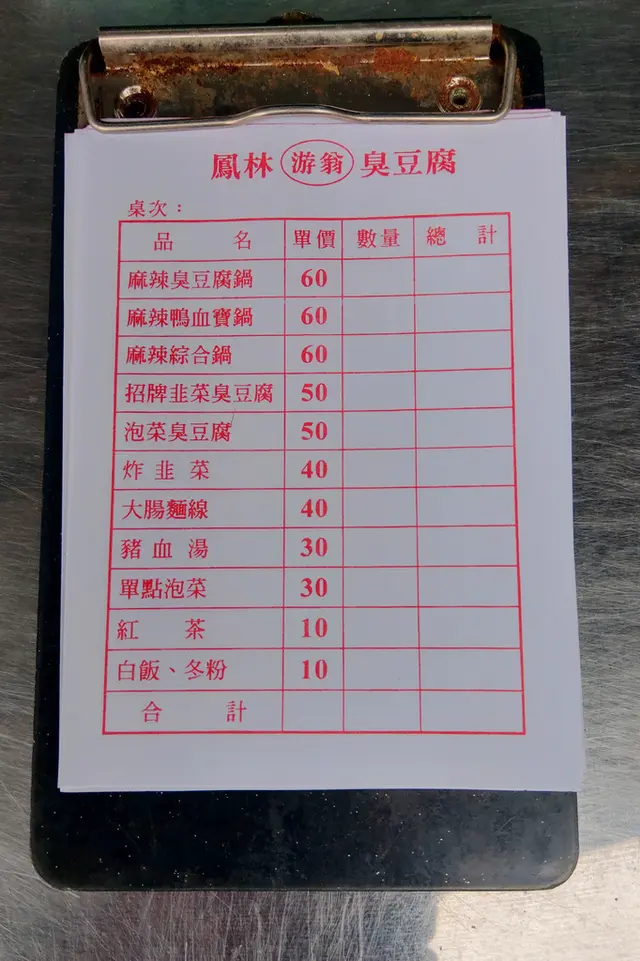 鳳林 游翁 臭豆腐
桌次：
品 名 單價 數量 總 計
麻辣臭豆腐鍋 60
麻辣鴨血寶鍋 60
麻辣綜合鍋 60
招牌韭菜臭豆腐 50
泡菜臭豆腐 50
炸韭菜 40
大腸麵線 40
豬血湯 30
單點泡菜 30
紅 茶 10
白飯、冬粉 10
合 計